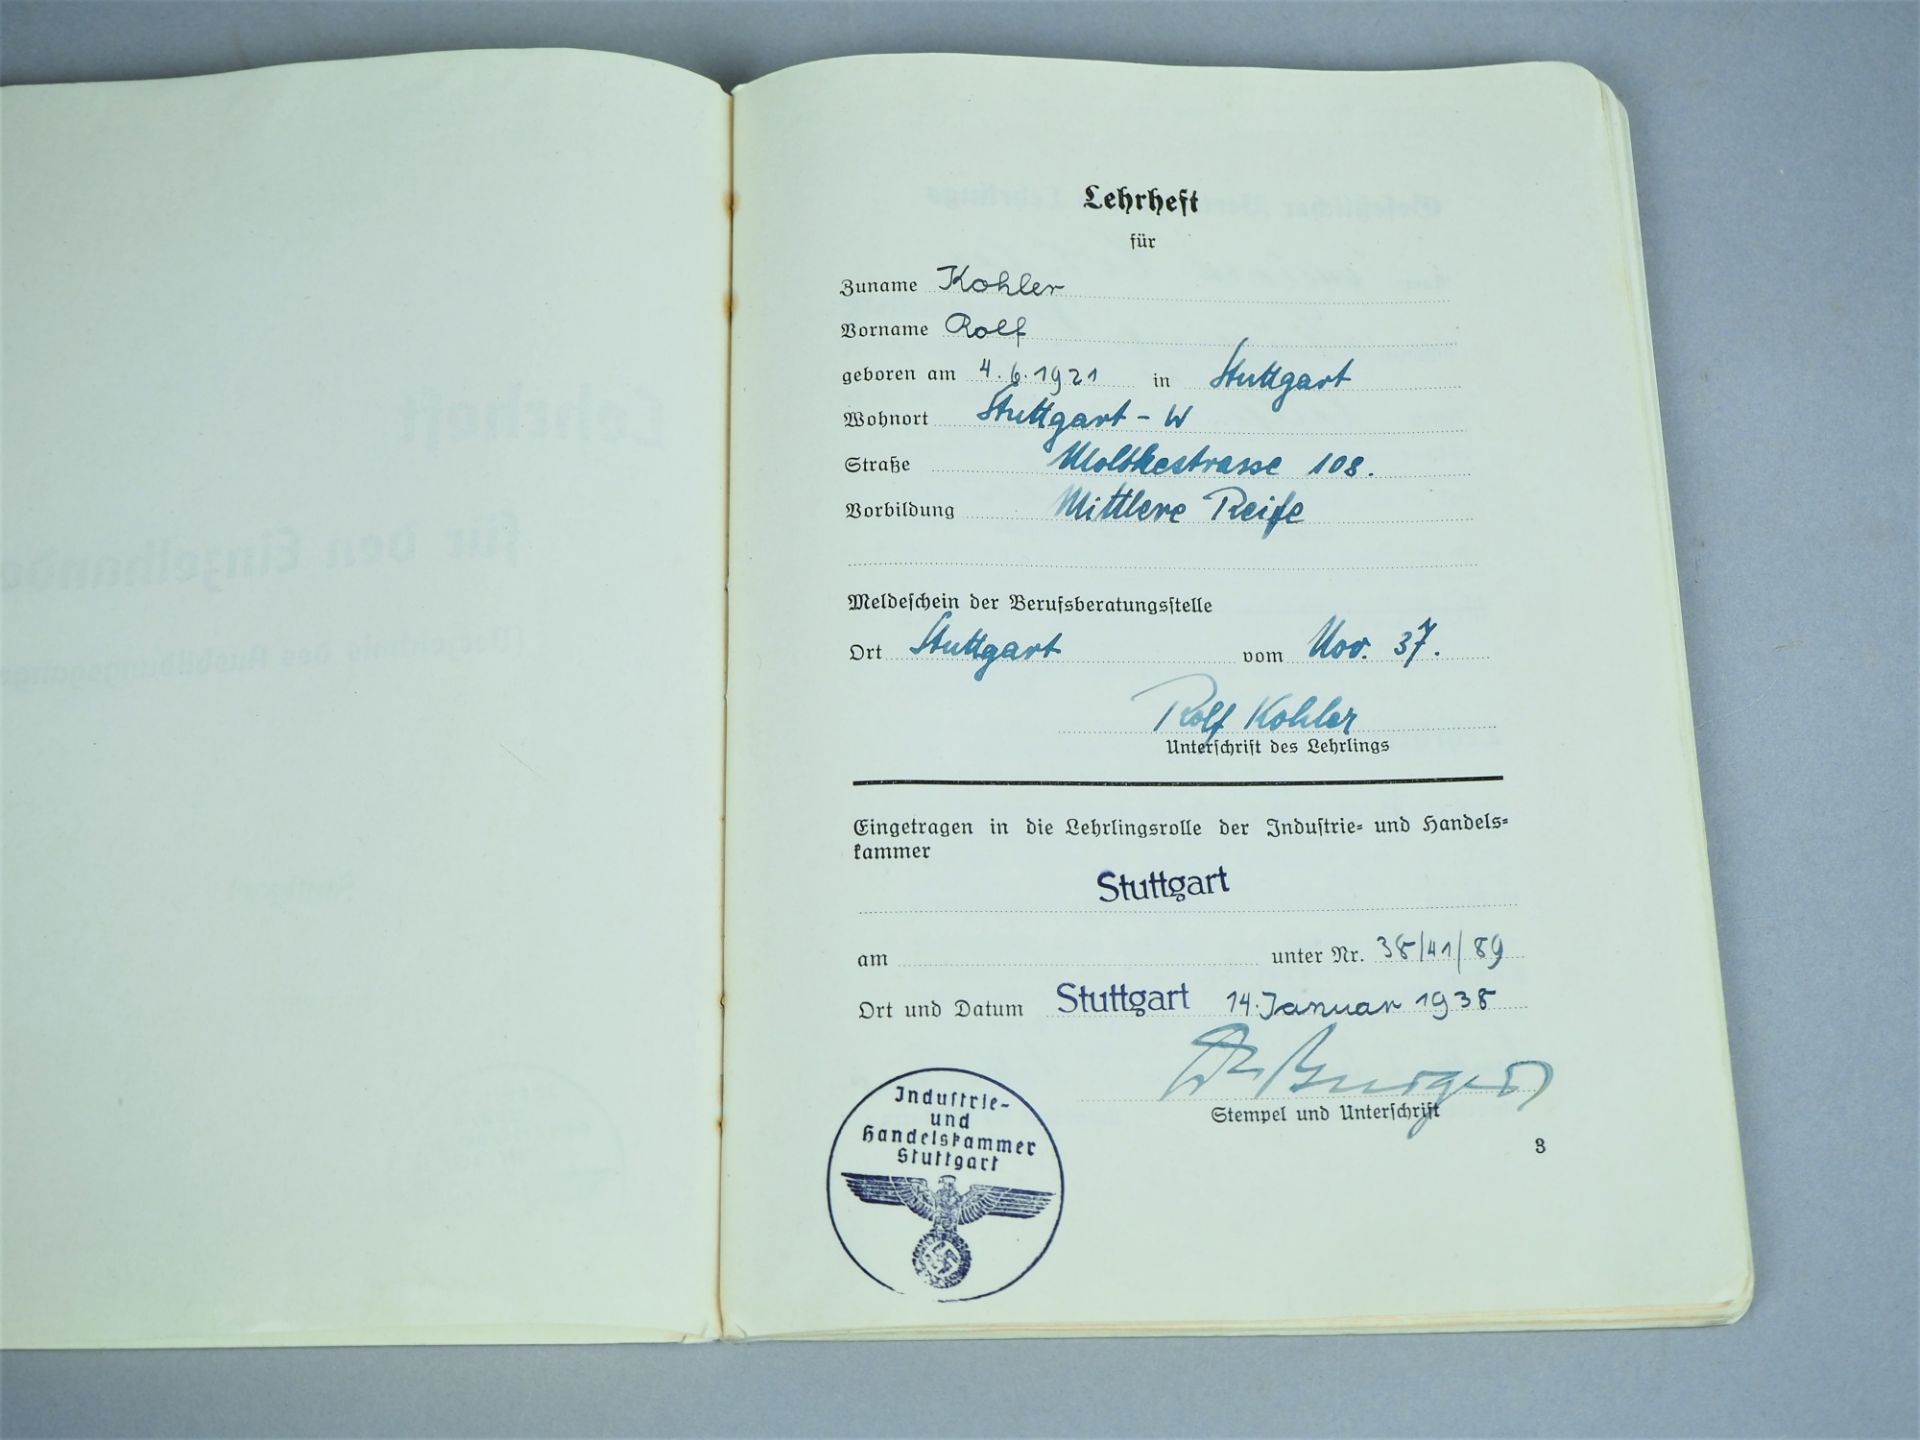 Lehrheft
für
Zuname Kohler
Vorname Rolf
geboren am 4.6.1921 in Stuttgart
Wohnort Stuttgart-W
Straße Moltkestrasse 108.
Vorbildung Mittlere Reife
Meldeschein der Berufsberatungsstelle
Ort Stuttgart vom Nov. 37.
Rolf Kohler
Unterschrift des Lehrlings
Eingetragen in die Lehrlingsrolle der Industrie- und Handels-
kammer
Stuttgart
am unter Nr. 38/41/89
Ort und Datum Stuttgart 14. Januar 1938
Stempel und Unterschrift
3
Industrie-
und
Handelskammer
Stuttgart
Lehrheft
für den Einzelhande
(Verzeichnis des Ausbildungsganges
Stuttgart